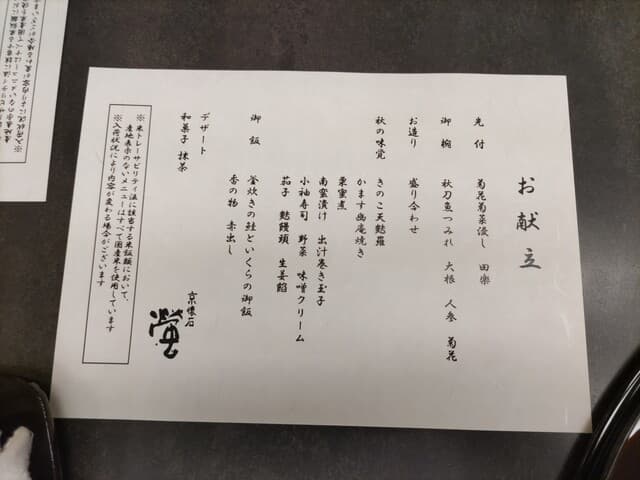 お献立
先付　菊花菊菜浸し　田楽
御椀　秋刀魚つみれ　大根　人参　菊花
お造り　盛り合わせ
秋の味覚　きのこ天麩羅
かます幽庵焼き
栗蜜煮
南蛮漬け　出汁巻き玉子
小袖寿司　野菜　味噌クリーム
茄子　麩饅頭　生姜餡
御飯　釜炊きの鮭といくらの御飯
香の物　赤出し
デザート
和菓子　抹茶
京懐石
螢
※米トレーサビリティ法に該当する米穀類において、
産地表示のないメニューはすべて国産米を使用しています
※入荷状況により内容が変わる場合がございます